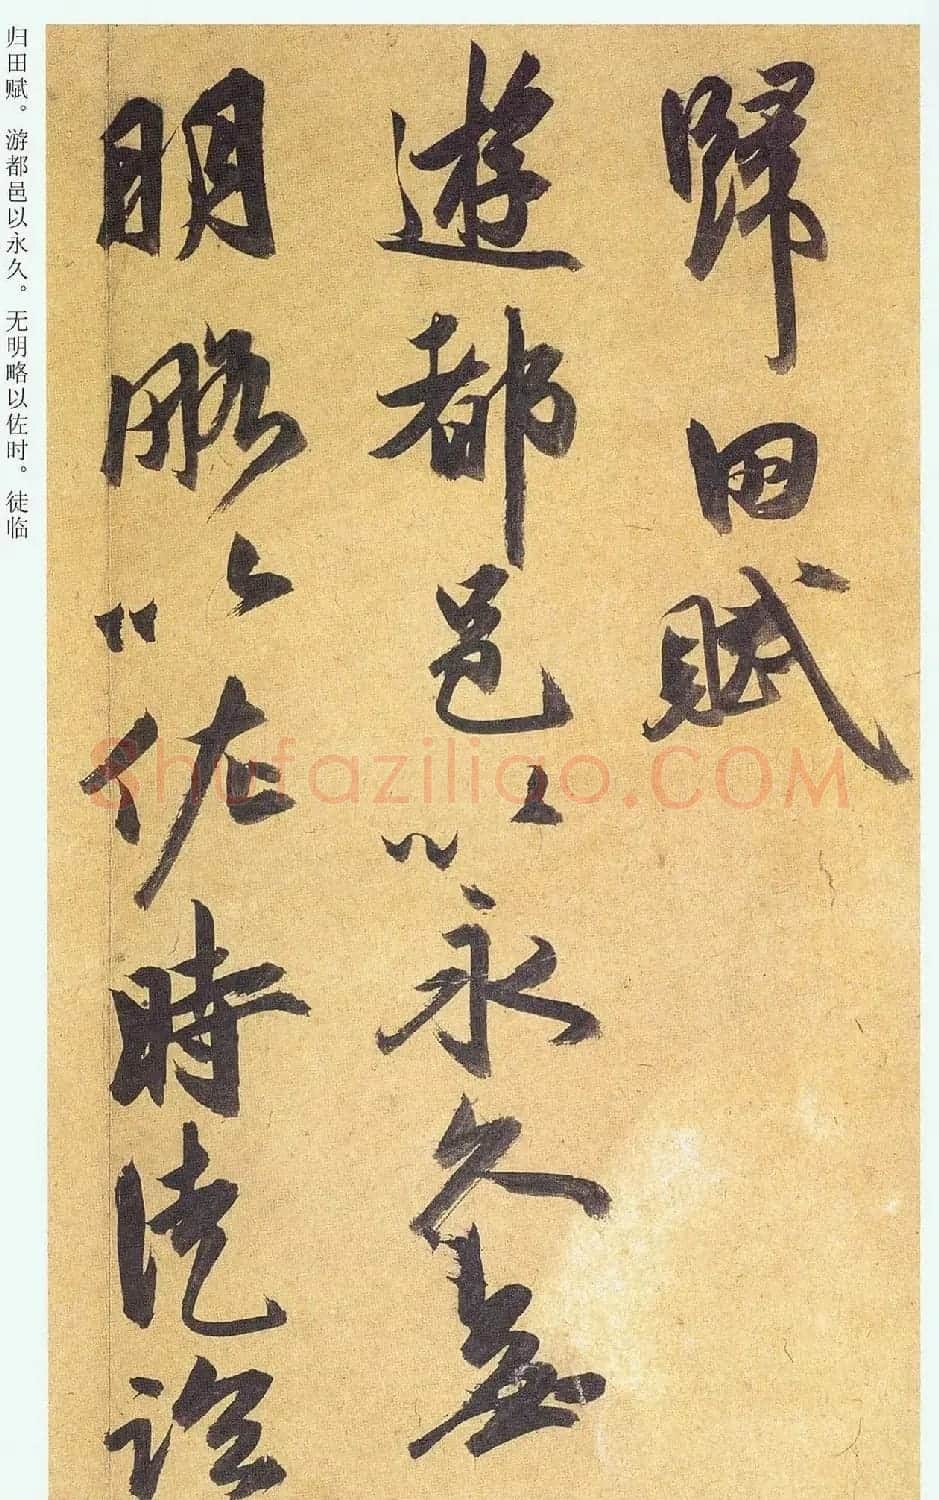 歸田賦
遊都邑以永久無
明略以佐時徒臨
归田赋。游都邑以永久。无明略以佐时。徒临
Shufaziliao.COM